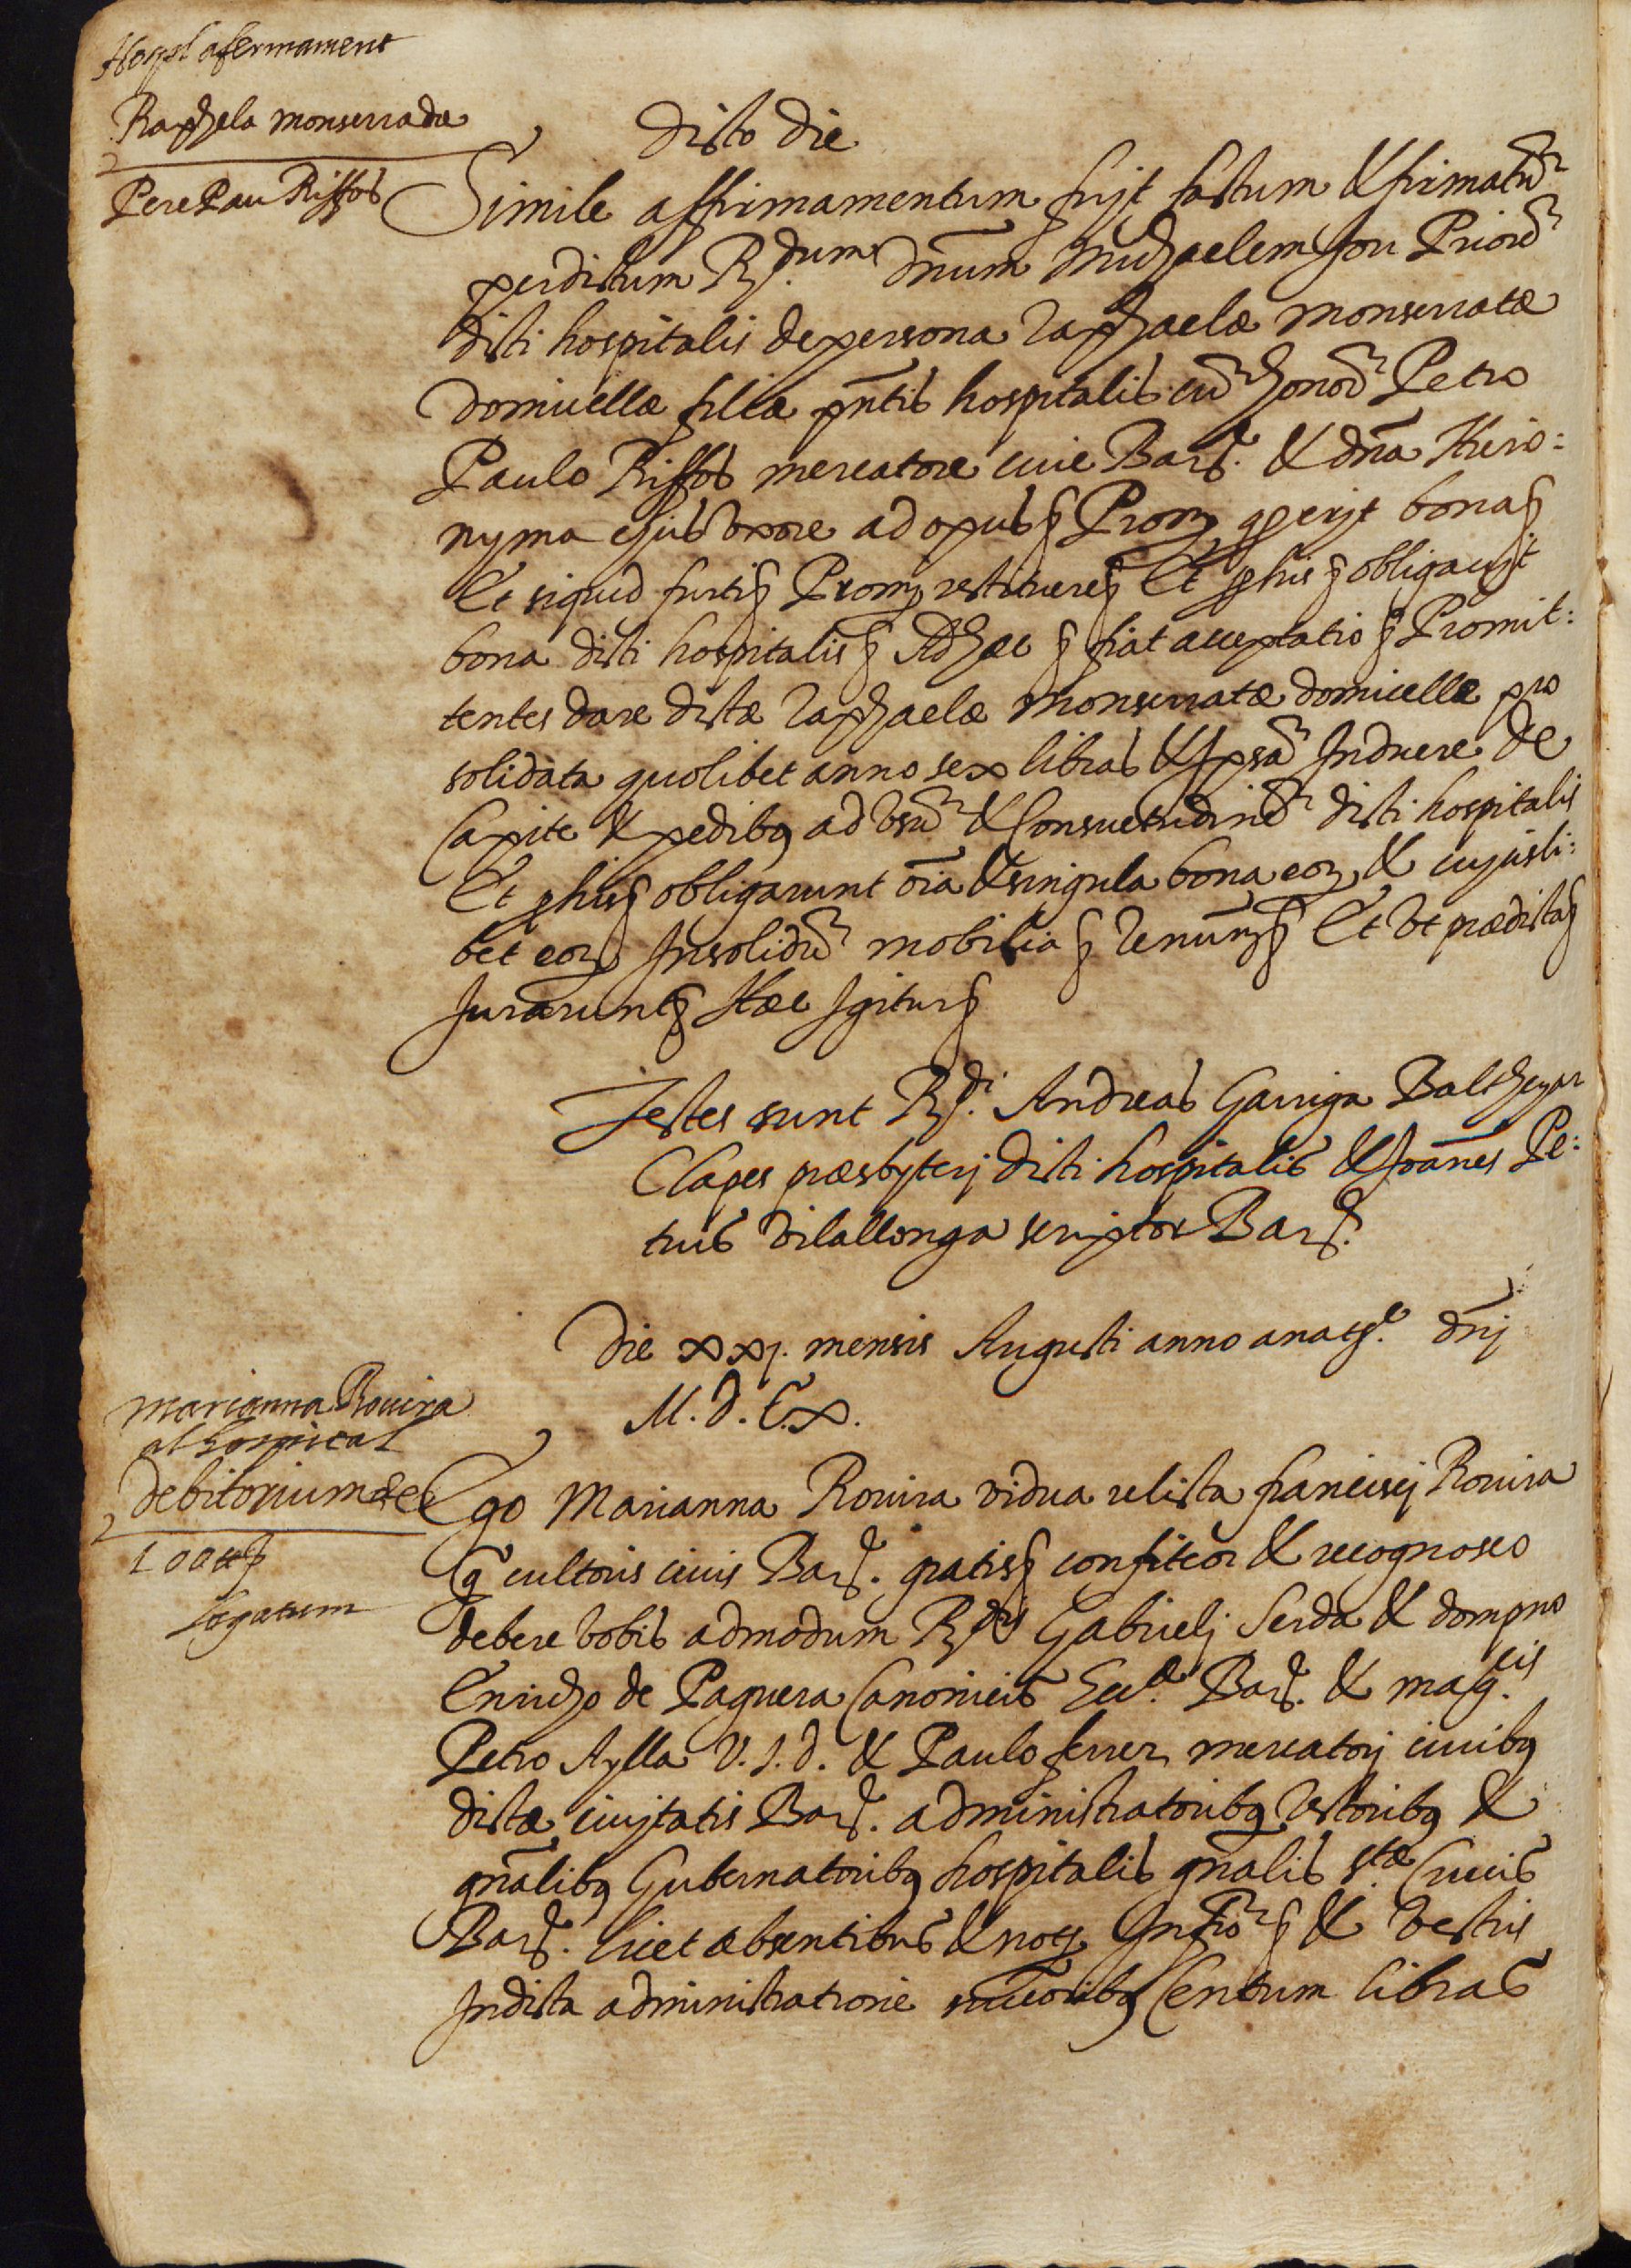 Hospl afermament
Raphela monserrada
Pere Pau Riffos
Dicto die
Simile affirmamentum fujt factum & firmatũ
per dictum R.dum dñum Michaelem Jou Priorẽ
dicti hospitalis de persona raphaelæ monserratæ
domicellæ filiæ pñtis hospitalis cũ honorẽ Petro
Paulo Riffos mercatore cive Barȼ. & dña Hiero:
nyma ejus uxore ad opus ꝭ Prom ꝙ erjt bona ꝭ
Et siquid furti ꝭ Prom restituere ꝭ Et ꝓ his ꝭ obligavjt
bona dicti hospitalis ꝭ Ad hæc ꝭ fiat acceptatio ꝭ Promit:
tentes dare dictæ raphaelæ monserratæ domicellæ pro
solidata quolibet anno sex libras & Ipsã Induere de
Capite & pedibꝯ ad usũ & Consuetudinẽ dicti hospitalis
Et ꝓ his ꝭ obligarunt oĩa & singula bona eoꝝ & cujusli:
bet eoꝝ Insolidũ mobilia ꝭ renũn ꝭ Et ut prædicta ꝭ
Jurarunt ꝭ Hæc Igitur ꝭ
Testes sunt R.di Andreas Garriga Balthezar
Clapes præsbyterj dicti hospitalis & Joañes Pe:
trus Vilallonga scriptor Barȼ.
Die xxj. mensis Augusti anno a natᵉ. dñj
M. D. C. x.
Marianna Rovira
al hospital
debitorium de
100 ℔
legatum
Ego Marianna Rovira vidua relicta francisci Rovira
ꝙ cultoris civis Barȼ. gratis ꝭ confiteor & recognosco
debere vobis admodum R.dis Gabrielj Serda & dompno
Enricho de Paguera Canonicis Sedis Barȼ. & mag.cis
Petro Aylla V. J. D. & Paulo ferrer mercatorj civibꝯ
dictæ civjtatis Barȼ. administratoribꝯ rectoribꝯ &
gñalibꝯ Gubernatoribꝯ hospitalis gñalis S.tæ Crucis
Barȼ. licet absentibus & not Infrõ ꝭ & vestris
In dicta administratione succoribꝯ Centum libras